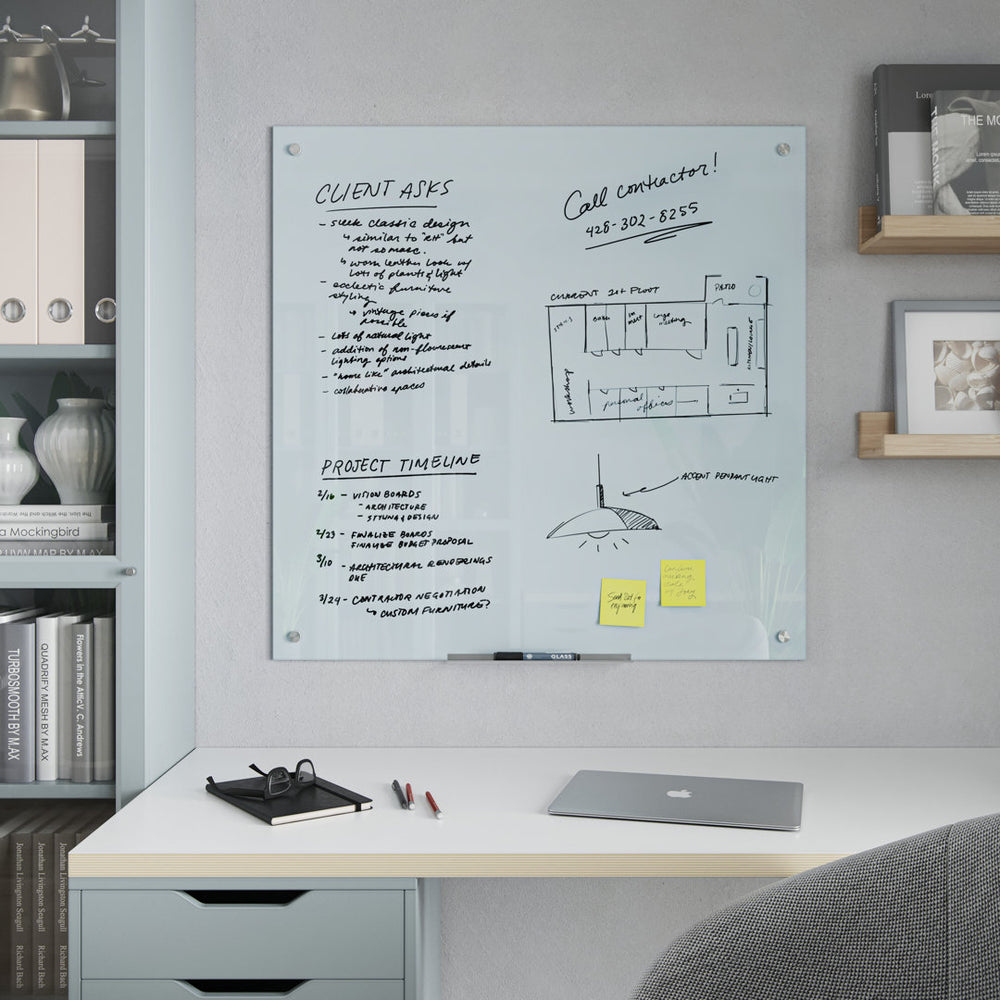 CLIENT ASKS
- sleek classic design
↳ similar to "RH" but
not so masc.
↳ worn leather look w/
lots of plants & light
- ecclectic furniture
styling
↳ vintage pieces if
possible
- Lots of natural light
- addition of non-flourescent
lighting options
- "home like" architectural details
- collaborative spaces
PROJECT TIMELINE
2/16 - VISION BOARDS
- ARCHITECTURE
- STYLING & DESIGN
2/23 - FINALIZE BOARDS
FINALIZE BUDGET PROPOSAL
3/10 - ARCHITECTURAL RENDERINGS
DUE
3/24 - CONTRACTOR NEGOTIATION
↳ CUSTOM FURNITURE?
Call contractor!
428-302-8255
CURRENT
PATIO
large meeting
workshop
personal offices
ACCENT PENDANT LIGHT
Send
for
GLASS
Lore
THE MO
Lorem ipsum
The Lion, The Witch and the
a Mockingbird
UVW MAP BY M.AX
TURBOSMOOTH BY M.AX
QUADRIFY MESH BY M.AX
Flowers in the Attic V. C. Andrews
Jonathan Livingston Seagull Richard Bach
Jonathan Livingston Seagull Richard Bach
Jonathan Livingston Seagull Richard Bach